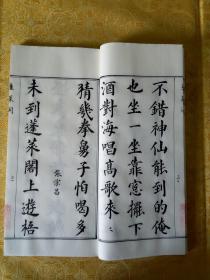 不錯神仙能到的俺
也坐一坐靠窓擺下
酒對海唱高歌來〻
猜幾拳舅子怕喝多
張宗昌
未到蓬萊閣上遊梧